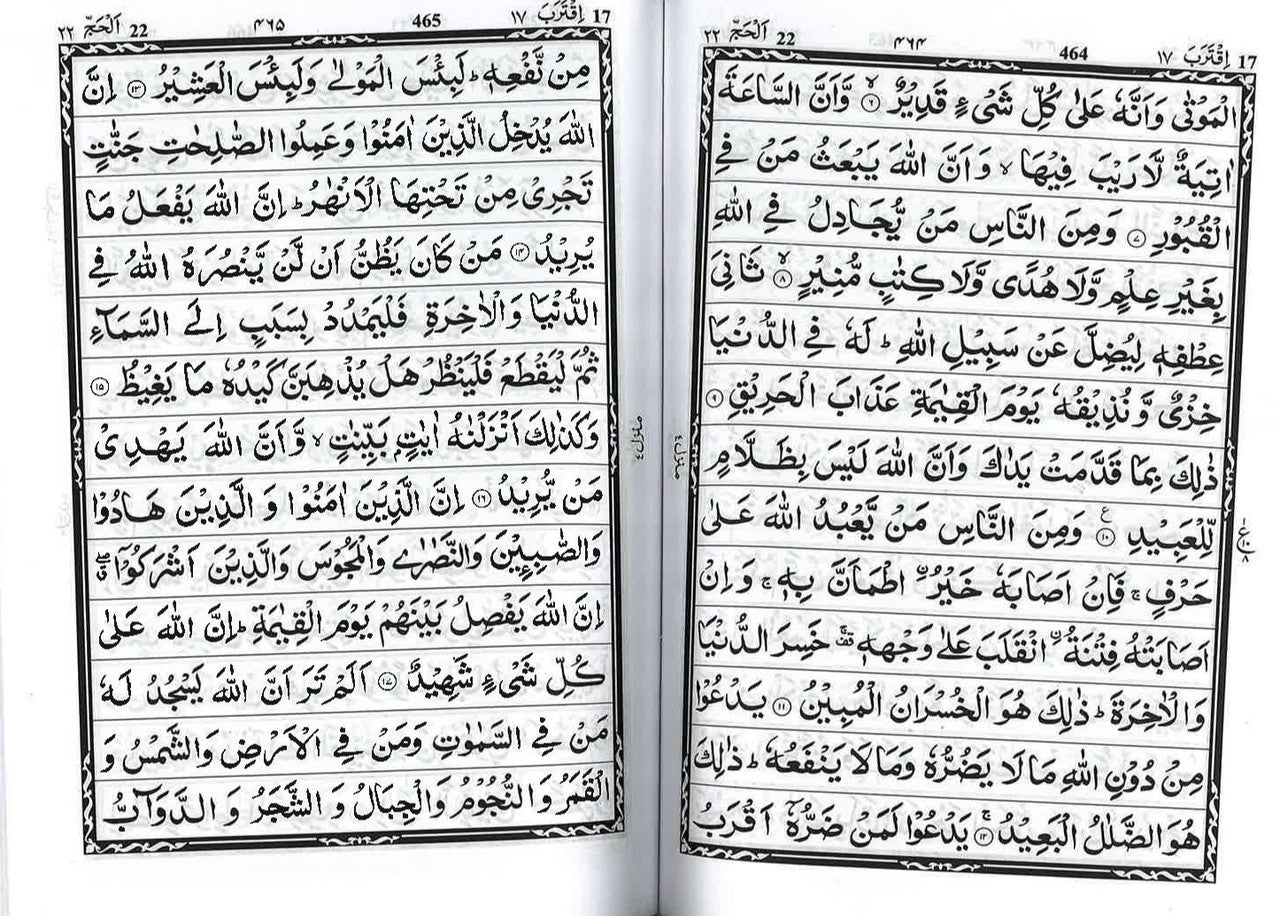 17 اِقْتَرَبَ ١٧ 464 ۴۶۴ 22 اَلْحَجّ ٢٢
الْمَوْتٰى وَاَنَّهٗ عَلٰى كُلِّ شَىْءٍ قَدِيْرٌ ۙ﴿۶﴾ وَّاَنَّ السَّاعَةَ
اٰتِيَةٌ لَّا رَيْبَ فِيْهَا ۙ وَاَنَّ اللّٰهَ يَبْعَثُ مَنْ فِى
الْقُبُوْرِ ﴿۷﴾ وَمِنَ النَّاسِ مَنْ يُّجَادِلُ فِى اللّٰهِ
بِغَيْرِ عِلْمٍ وَّلَا هُدًى وَّلَا كِتٰبٍ مُّنِيْرٍ ۙ﴿۸﴾ ثَانِىَ
عِطْفِهٖ لِيُضِلَّ عَنْ سَبِيْلِ اللّٰهِ ؕ لَهٗ فِى الدُّنْيَا
خِزْىٌ وَّنُذِيْقُهٗ يَوْمَ الْقِيٰمَةِ عَذَابَ الْحَرِيْقِ ﴿۹﴾
ذٰلِكَ بِمَا قَدَّمَتْ يَدٰكَ وَاَنَّ اللّٰهَ لَيْسَ بِظَلَّامٍ
لِّلْعَبِيْدِ ﴿۱۰﴾ ع وَمِنَ النَّاسِ مَنْ يَّعْبُدُ اللّٰهَ عَلٰى
حَرْفٍ ۚ فَاِنْ اَصَابَهٗ خَيْرُ ۨ اطْمَاَنَّ بِهٖ ۚ وَاِنْ
اَصَابَتْهُ فِتْنَةُ ۨ انْقَلَبَ عَلٰى وَجْهِهٖ ۚ قف خَسِرَ الدُّنْيَا
وَالْاٰخِرَةَ ؕ ذٰلِكَ هُوَ الْخُسْرَانُ الْمُبِيْنُ ﴿۱۱﴾ يَدْعُوْا
مِنْ دُوْنِ اللّٰهِ مَا لَا يَضُرُّهٗ وَمَا لَا يَنْفَعُهٗ ؕ ذٰلِكَ
هُوَ الضَّلٰلُ الْبَعِيْدُ ۚ﴿۱۲﴾ يَدْعُوْا لَمَنْ ضَرُّهٗۤ اَقْرَبُ
17 اِقْتَرَبَ ١٧ 465 ۴۶۵ 22 اَلْحَجّ ٢٢
مِنْ نَّفْعِهٖ ؕ لَبِئْسَ الْمَوْلٰى وَلَبِئْسَ الْعَشِيْرُ ﴿۱۳﴾ اِنَّ
اللّٰهَ يُدْخِلُ الَّذِيْنَ اٰمَنُوْا وَعَمِلُوا الصّٰلِحٰتِ جَنّٰتٍ
تَجْرِىْ مِنْ تَحْتِهَا الْاَنْهٰرُ ؕ اِنَّ اللّٰهَ يَفْعَلُ مَا
يُرِيْدُ ﴿۱۴﴾ مَنْ كَانَ يَظُنُّ اَنْ لَّنْ يَّنْصُرَهُ اللّٰهُ فِى
الدُّنْيَا وَالْاٰخِرَةِ فَلْيَمْدُدْ بِسَبَبٍ اِلَى السَّمَآءِ
ثُمَّ لْيَقْطَعْ فَلْيَنْظُرْ هَلْ يُذْهِبَنَّ كَيْدُهٗ مَا يَغِيْظُ ﴿۱۵﴾
وَكَذٰلِكَ اَنْزَلْنٰهُ اٰيٰتٍۭ بَيِّنٰتٍ ۙ وَّاَنَّ اللّٰهَ يَهْدِىْ
مَنْ يُّرِيْدُ ﴿۱۶﴾ اِنَّ الَّذِيْنَ اٰمَنُوْا وَالَّذِيْنَ هَادُوْا
وَالصّٰبِـِٕيْنَ وَالنَّصٰرٰى وَالْمَجُوْسَ وَالَّذِيْنَ اَشْرَكُوْۤا ۖ ق
اِنَّ اللّٰهَ يَفْصِلُ بَيْنَهُمْ يَوْمَ الْقِيٰمَةِ ؕ اِنَّ اللّٰهَ عَلٰى
كُلِّ شَىْءٍ شَهِيْدٌ ﴿۱۷﴾ اَلَمْ تَرَ اَنَّ اللّٰهَ يَسْجُدُ لَهٗ
مَنْ فِى السَّمٰوٰتِ وَمَنْ فِى الْاَرْضِ وَالشَّمْسُ وَ
الْقَمَرُ وَالنُّجُوْمُ وَالْجِبَالُ وَالشَّجَرُ وَالدَّوَآبُّ
منزل ٤